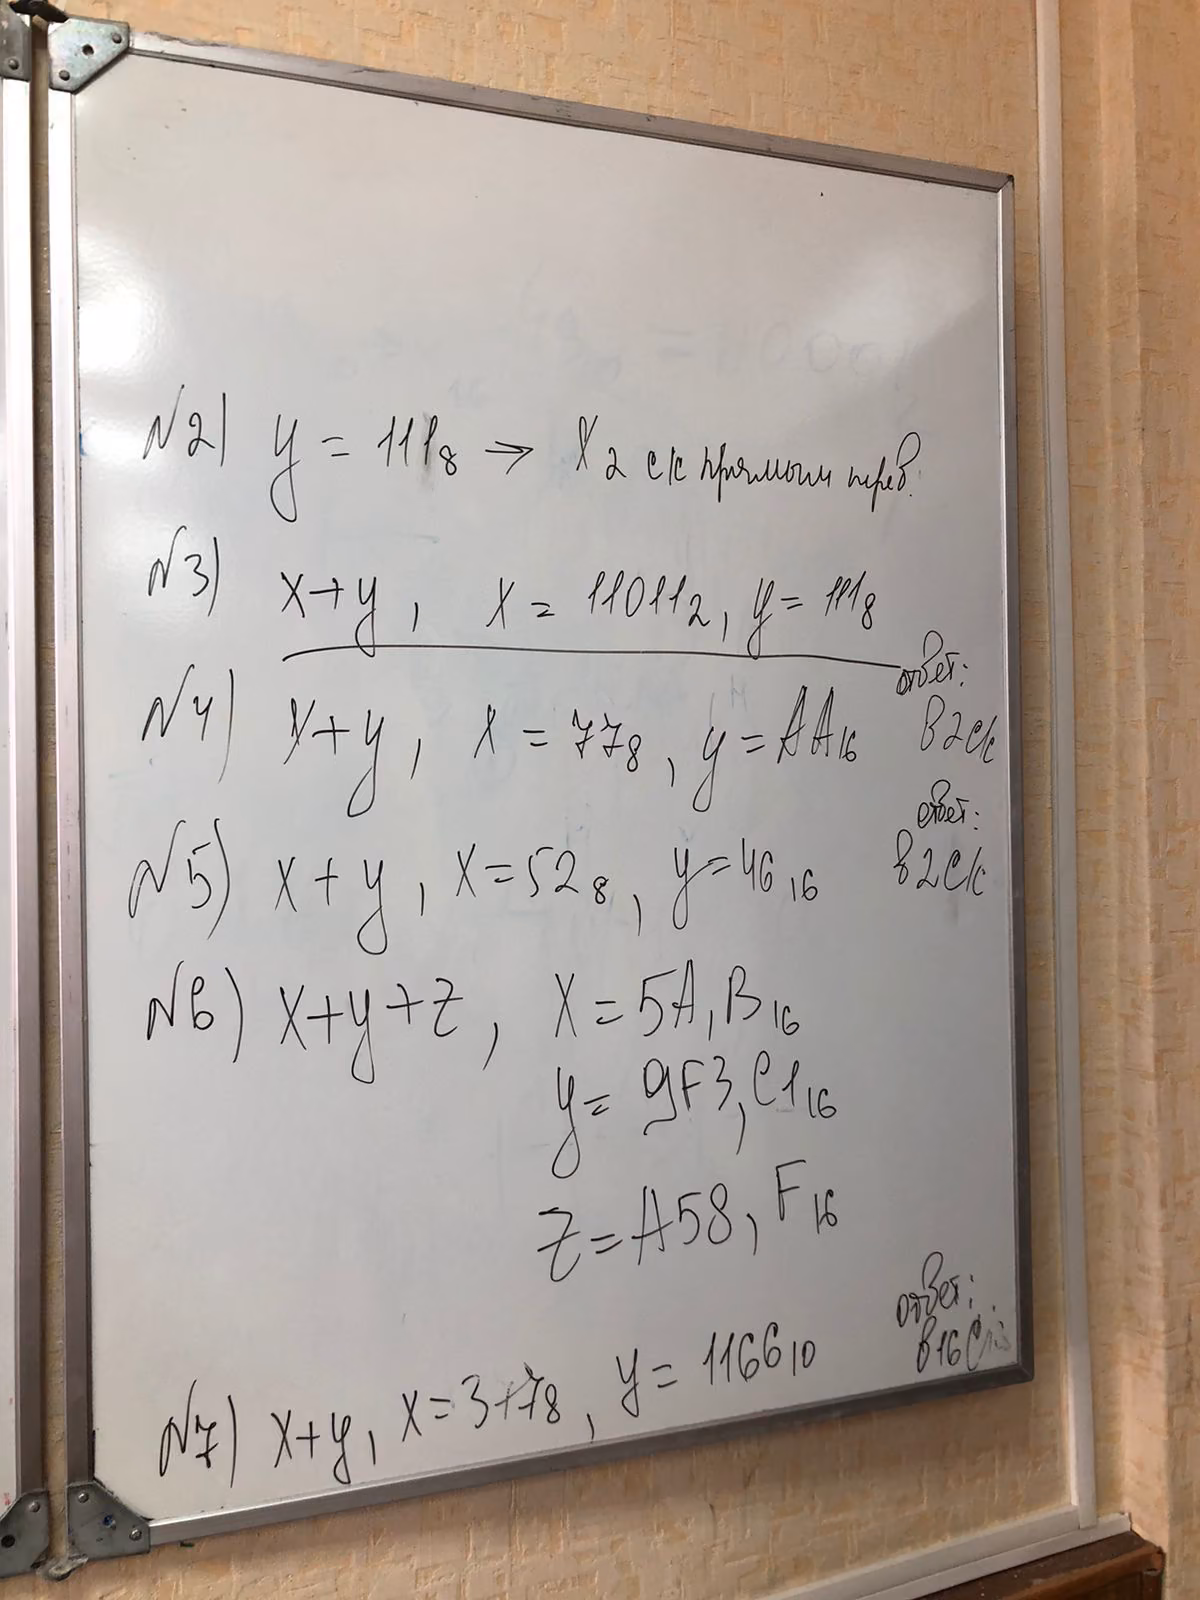 N2) y = 111₈ → X₂ с/с прямым перев.
N3) x+y, x = 11011₂, y = 111₈
N4) x+y, x = 77₈, y = AA₁₆ ответ: в 2 с/с
N5) x+y, x = 52₈, y = 46₁₆ ответ: в 2 с/с
N6) x+y+z, x = 5A,B₁₆
y = 9F3,C1₁₆
z = A58,F₁₆
N7) x+y, x = 377₈, y = 1166₁₀ ответ: в 16 с/с